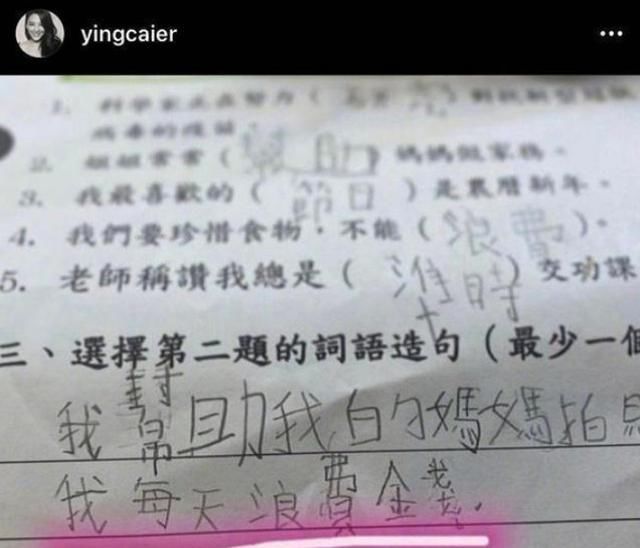 yingcaier
1. 科學家正在努力（ ）對抗新型冠狀
病毒的疫苗。
2. 姐姐常常（幫助）媽媽做家務。
3. 我最喜歡的（節日）是農曆新年。
4. 我們要珍惜食物，不能（浪費）。
5. 老師稱讚我總是（準時）交功課
三、選擇第二題的詞語造句（最少一個
我幫助我的媽媽拍
我每天浪費金錢。